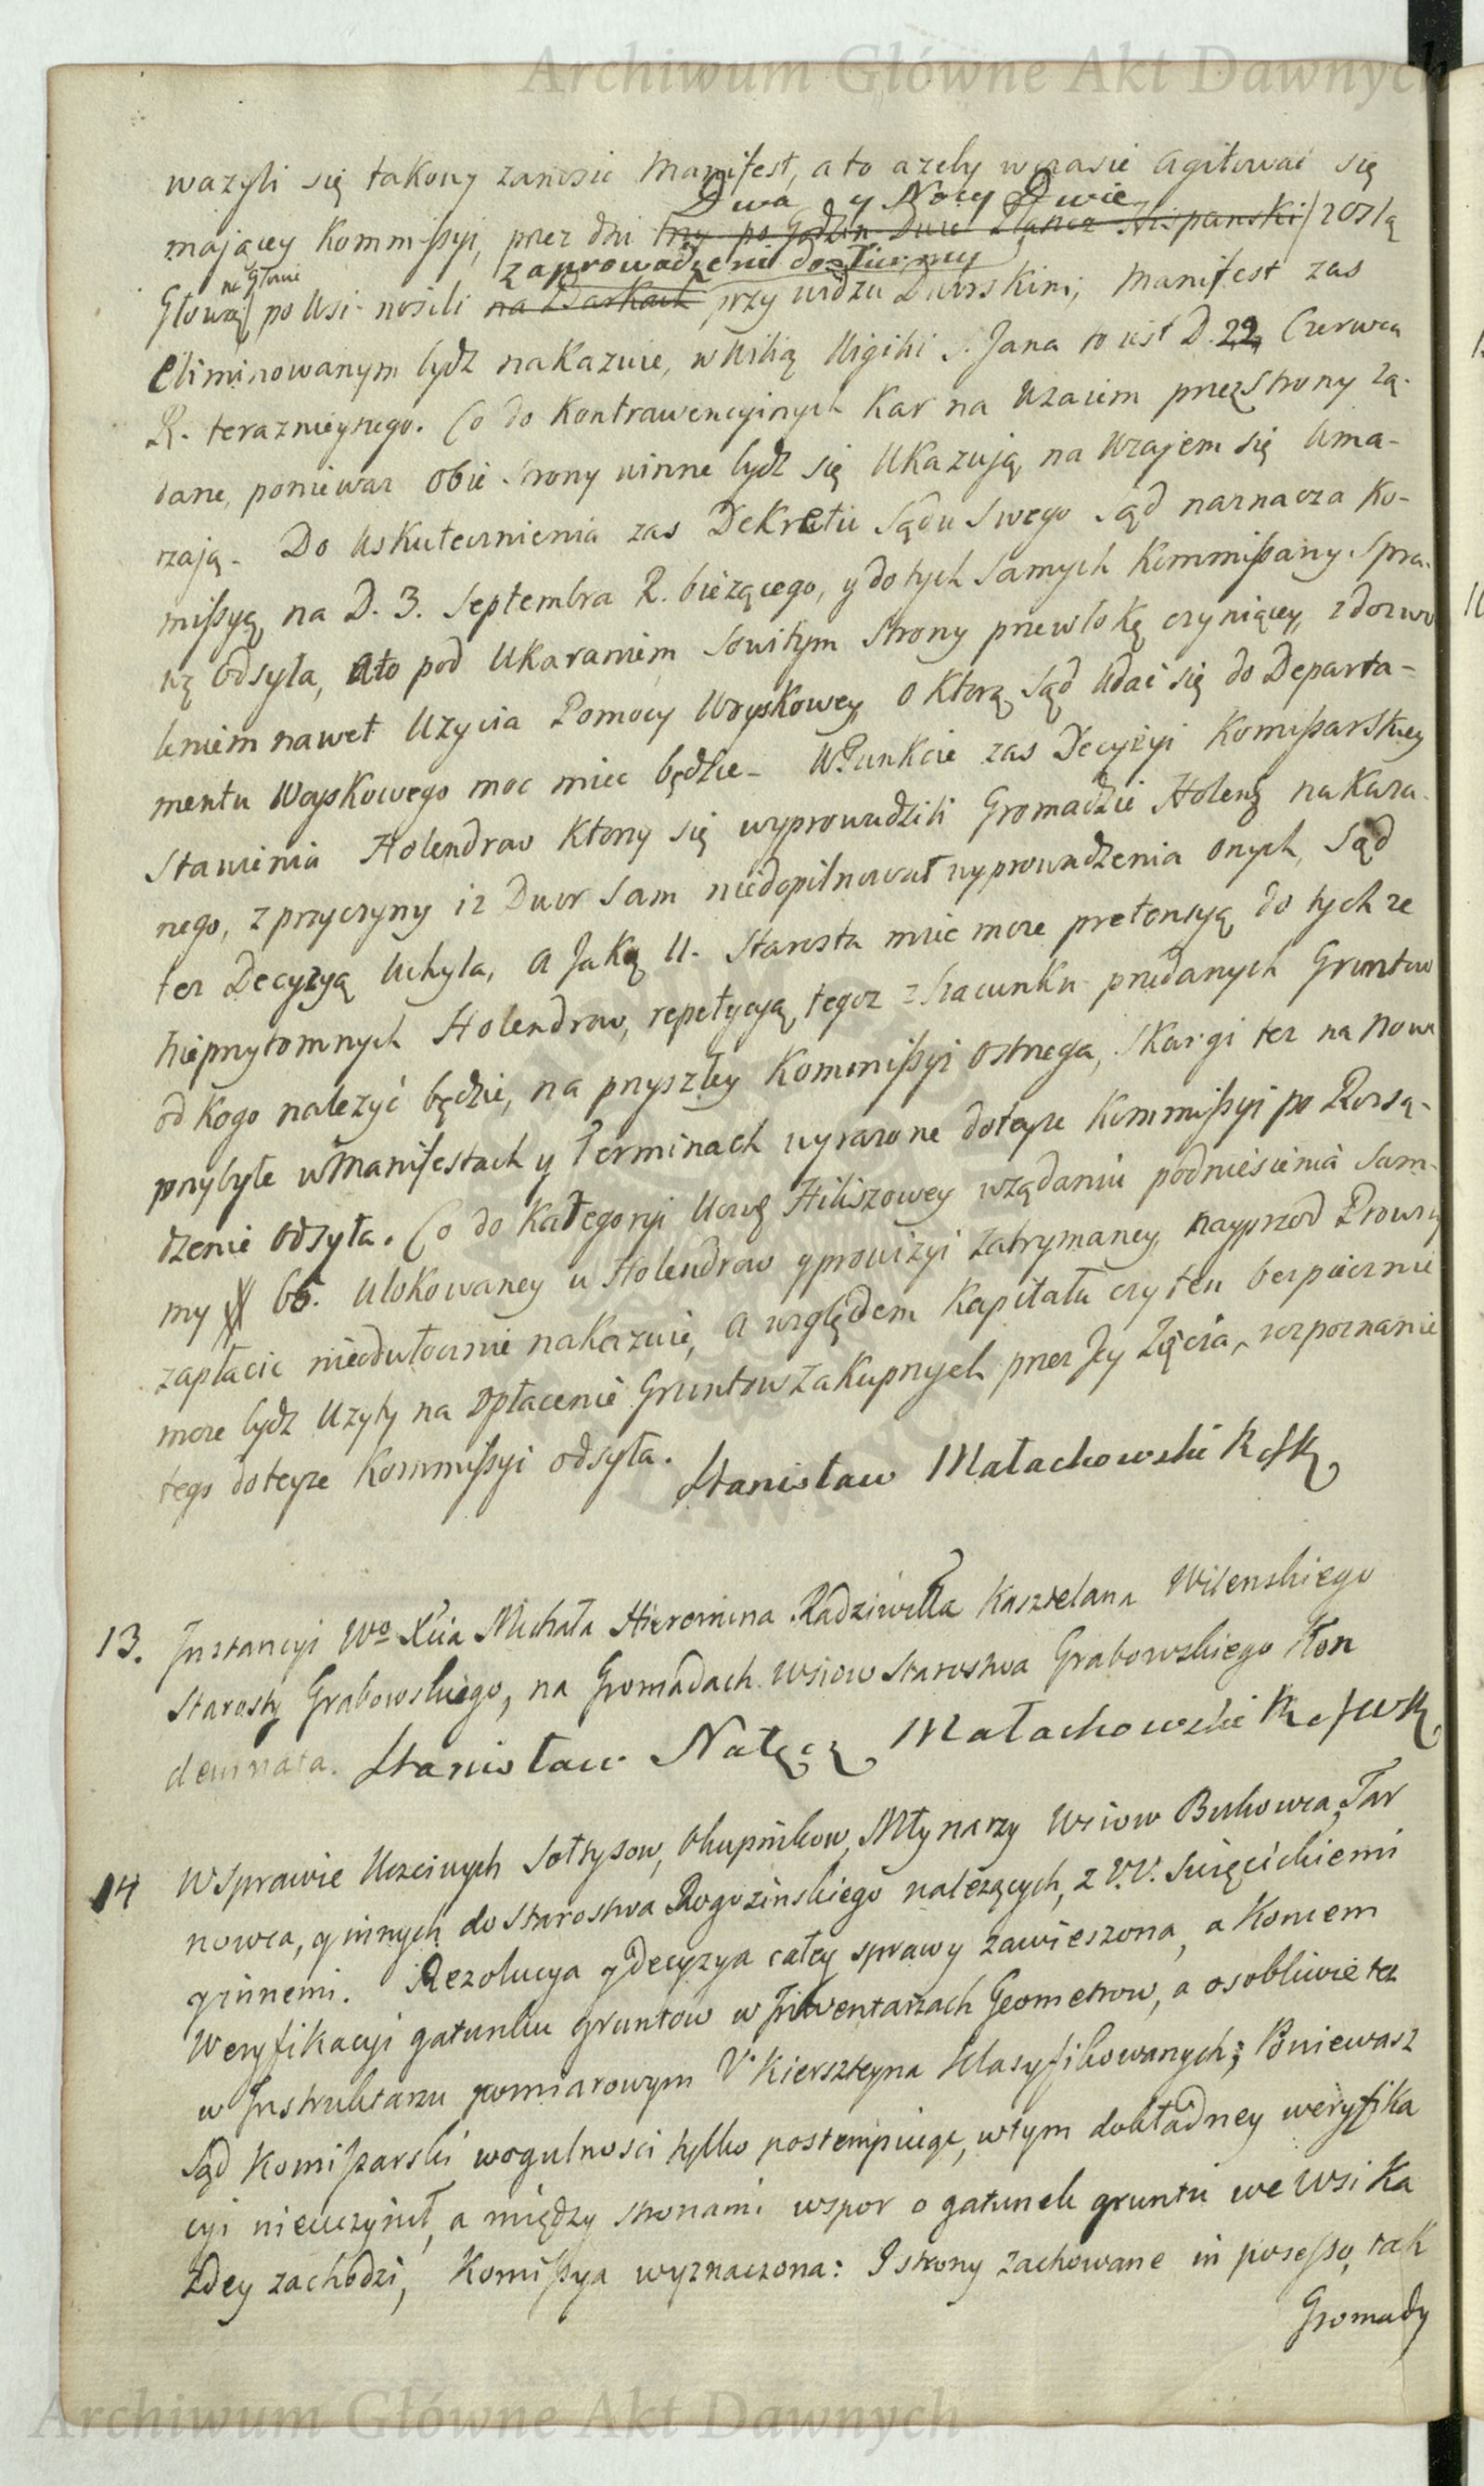 Archiwum Główne Akt Dawnych
wazyli się takowy zanosic Manifest, a to azeby wczasie Agitować się
Dwa y Nocy Dwie
maiącey Kommissyi, przez dni trzy po Godzin Dwie Płaszcz Hiszpanski zozłą
na Głowie zaprowadzeni do
Głowę po Wsi nosili na Barkach przy widzu Dworskim; Manifest zas
Eliminowanym bydz nakazuie, w Wilią Wigilii S. Jana to iest D. 22 Czerwca
R. teraznieyszego. Co do Kontrawencyinych Kar na Wzaiem przez Strony żą-
dane, poniewaz Obie Strony winne bydz się Ukazują, na Wzajem się Uma-
rzają. Do Uskutecznienia zas Dekretu Sądu Swego Sąd naznacza Ko-
missyą na D. 3. Septembra R. bieżącego, y do tych Samych Kommissarzy Spra-
wę Odsyła, Ato pod Ukaraniem Sowitym Strony przewłokę czyniącey, z dozwo
leniem nawet Uzycia Pomocy Woyskowey, o Którą Sąd Udać się do Departa-
mentu Woyskowego moc miec będzie. W Punkcie zas Decyzyi Komissarskiey
Stawienia Holendrow Ktorzy się wyprowadzili Gromadzie Holend nakaza-
nego, z przyczyny iz Dwor Sam niedopilnował wyprowadzenia onych, Sąd
tez Decyzyą Uchyla, A Jaką U. Starosta miec moze pretensyą do tych ze
Nieprzytomnych Holendrow, repetycyą tegoz z Szacunku przedanych Gruntow
od Kogo należyć będzie, na przyszłey Kommissyi Ostrzega, Skargi tez na Nowo
przybyłe w Manifestach y Terminach wyrazone doteyze Kommissyi po Rozsą-
dzenie Odsyła. Co do Kategoryi Uczc Hiliszowey wżądaniu podniesienia Sum-
my 66. Ulokowaney u Holendrow y prowizyi zatrzymaney, nayprzod Prowizy
zapłacic nieodwłocznie nakazuie, A względem Kapitału czy ten bezpiecznie
moze bydz Uzyty na Opłacenie Gruntow Zakupnych przez Jey Zięcia, rozpoznanie
tego doteyze Kommissyi odsyła.
Stanisław Małachowski R S K
13. Instancyi Wo Xcia Michała Hieronima Radziwiłła Kasztelana Wilenskiego
Starosty Grabowskiego, na Gromadach Wsiow Starostwa Grabowskiego Kon
demnata. Stanisław Nałęcz Małachowski R S W K
14 W Sprawie Uczciwych Sołtysow, Okupnikow, Młynarzy Wsiow Bukowca, Tar
nowca, y innych do Starostwa Rogozinskiego należących, z V.V. Swięcickiemi
y innemi. Rezolucya y Decyzya całey sprawy zawieszona, a Koncem
Weryfikacyi gatunku gruntow w Inwentarzach Geometrow, a osobliwie tez
w Instruktarzu pomiarowym V. Kierszteyna klasyfikowanych; Poniewasz
Sąd Komissarski wogulnosci tylko postempuiąc, wtym dokładney weryfika
cyi nieuczynił, a między stronami wspor o gatunek gruntu we Wsi Ka
żdey zachodzi, Komissya wyznaczona: I strony zachowane in possesso, tak
Gromady
Archiwum Główne Akt Dawnych